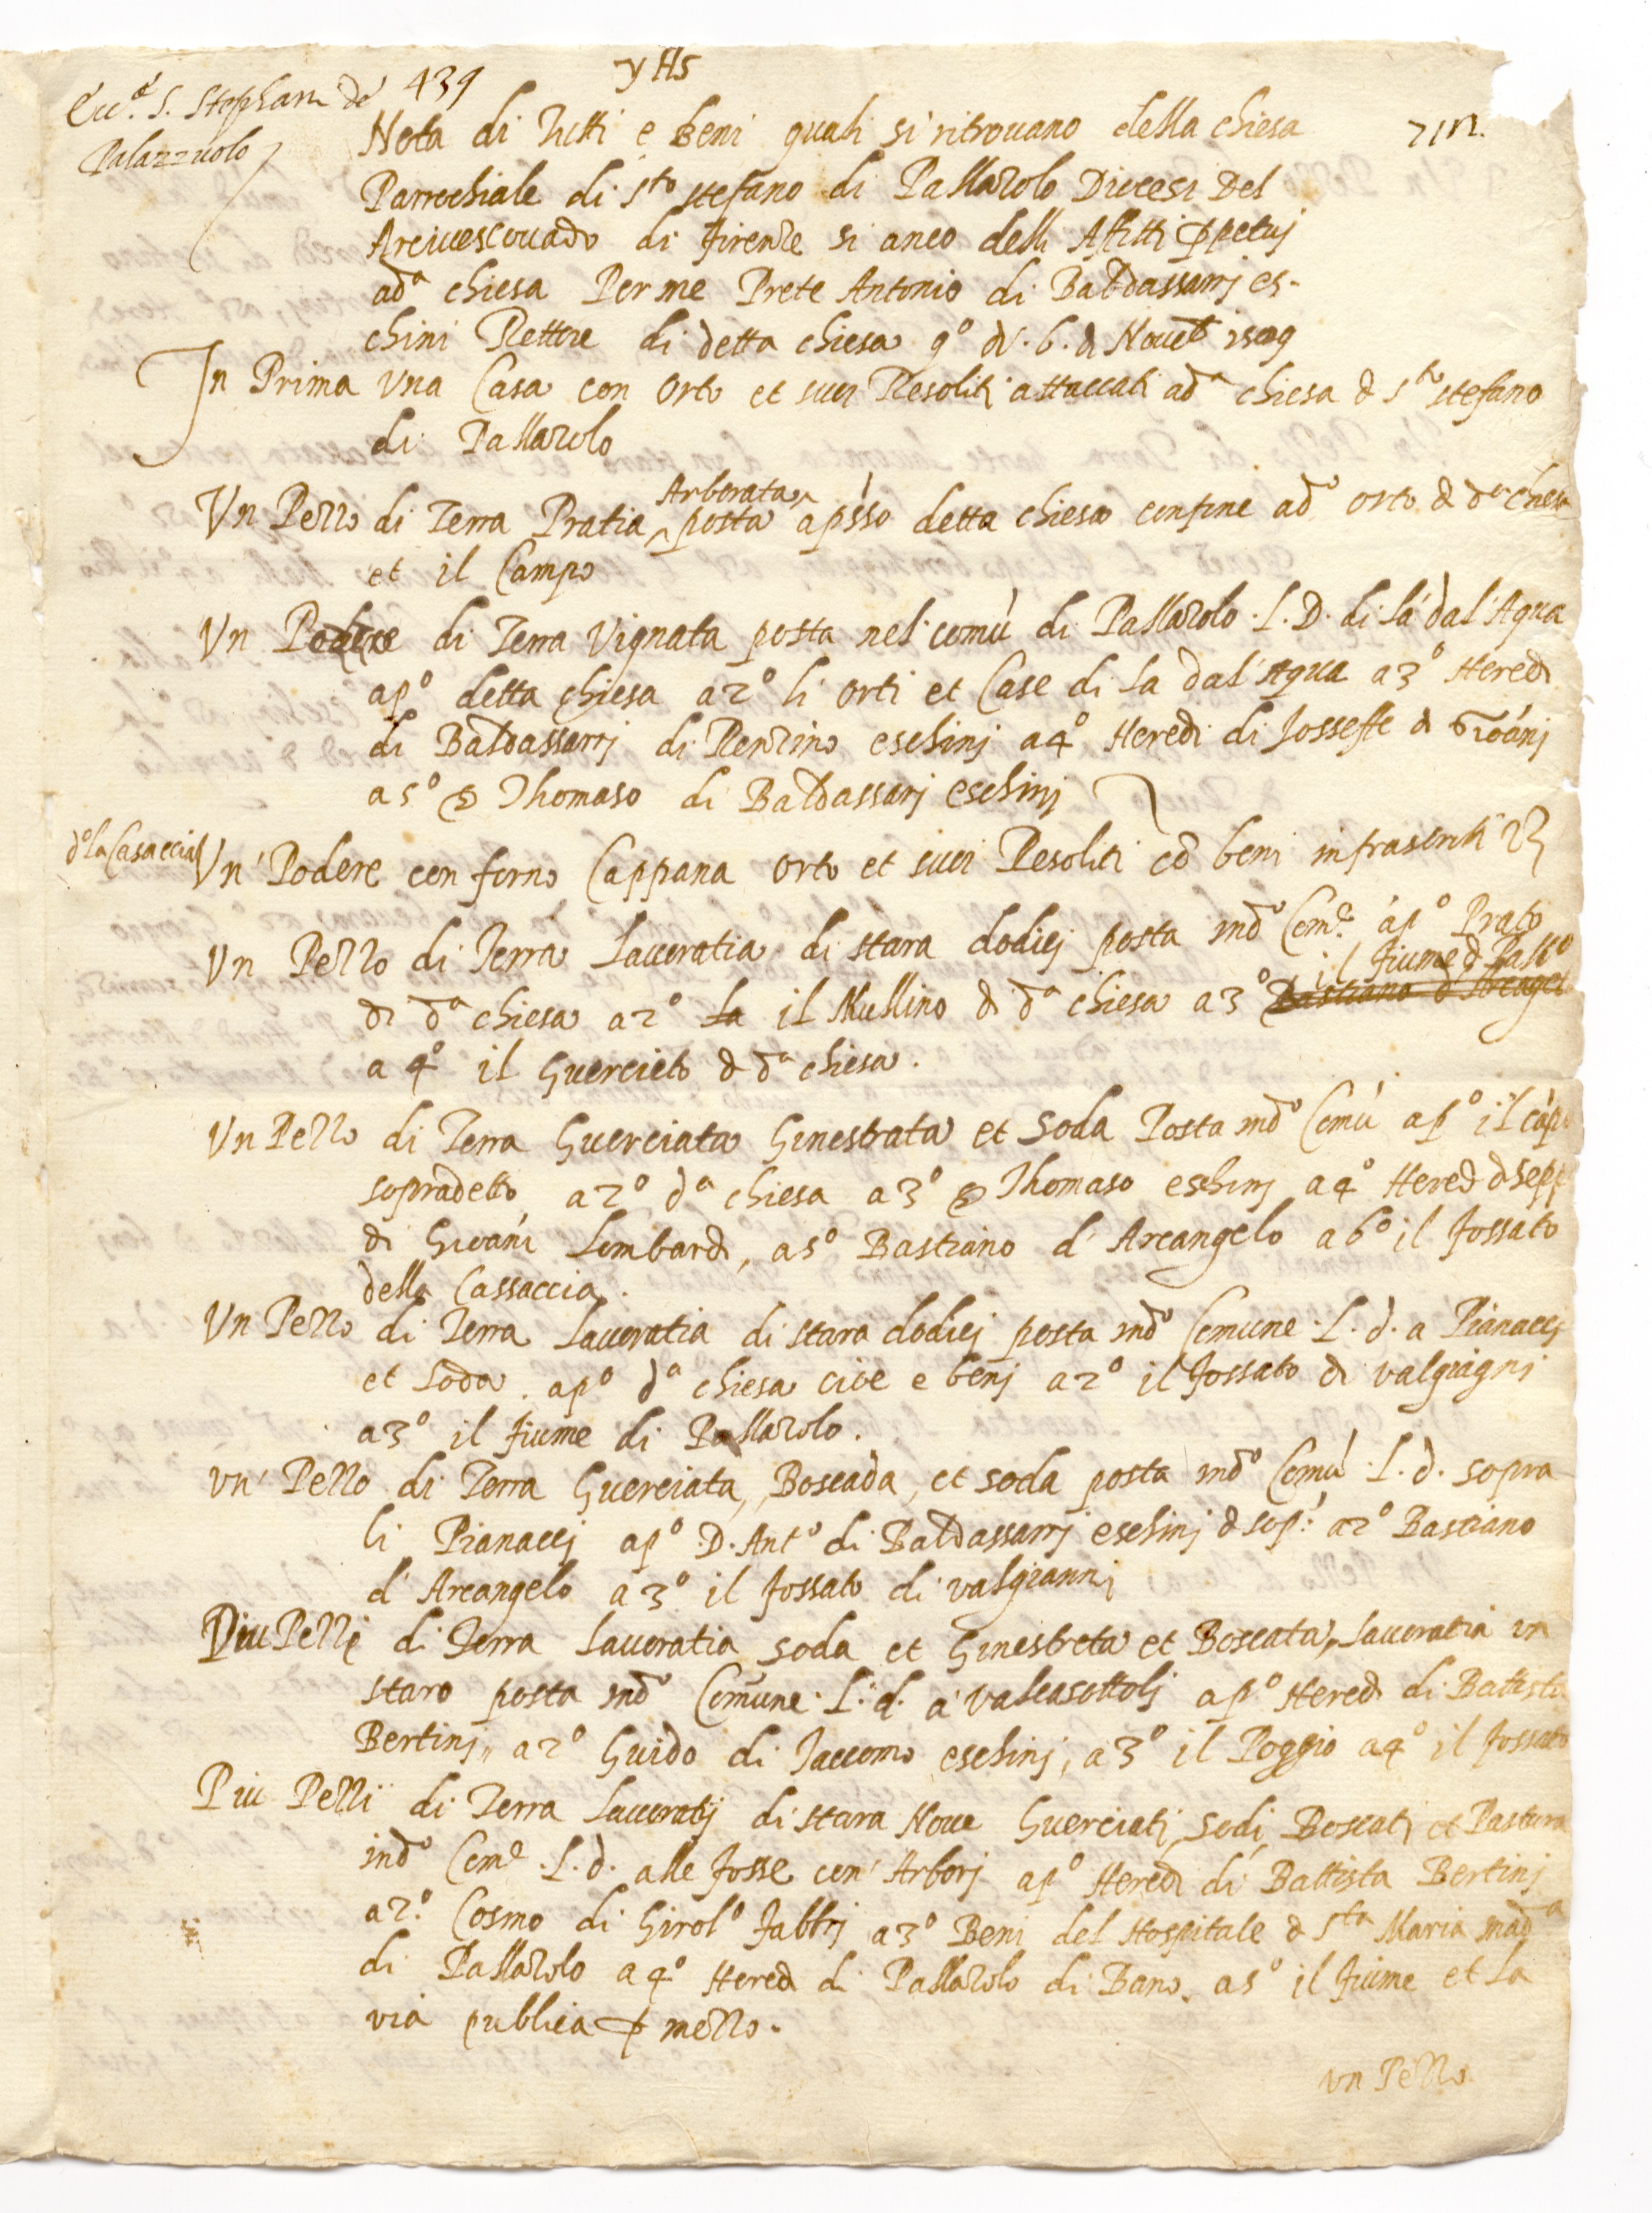 yHs
Ecc.ª S. Stephani de 439
Palazzuolo
Nota di Tutti e Beni quali si ritrovano della chiesa
Parrochiale di S.to stefano di Pallazolo Diocesi Del
Arcivescovado di Firenze si anco delli Afitti ppetuj
ad.ª chiesa Per me Prete Antonio di Baldassarrj es-
chini Rettore di detta chiesa q.º dì .6. di Noueb
In Prima Vna Casa con Orto et suoi Resoliti attaccati ad.ª chiesa d S.to stefano
di Pallazolo
Arborata
Vn Pezzo di Terra Pratia ^ posta apsso detta chiesa confine ad.º orto d d.ª chiesa
et il Campo
Vn Podere di Terra Vignata posta nel comù di Pallazolo .L.D. di là dal Aqua
ap.º detta chiesa a 2.º li orti et Case di la dal Aqua a 3.º Heredi
di Baldassarrj di Renzino eschinj a 4.º Heredi di Josseffe d Gioánj
a 5.º Thomaso di Baldassarj eschinj
d.º la Casaccia
Vn' Podere con forno Cappana orto et suoi Resoliti có beni infrascritti
Vn Pezzo di Terra Lauoratia di stara dodicj posta ind.º Com.e ap.º Prato
il fiume d Pall.º
di d.ª chiesa a 2.º la il Mullino di d.ª chiesa a 3.º Bastiano d Arcagel
a 4.º il Guercieto d d.ª chiesa.
Vn Pezzo di Terra Guerciata Ginestrata et Soda Posta ind.º Comù ap.º il cápo
sopradetto a 2.º d.ª chiesa a 3.º Thomaso eschinj a 4.º Hered d Sepp
di Giuáni Lombardi, a 5.º Bastiano d' Arcangelo a 6.º il fossato
della Cassaccia.
Vn Pezzo di Terra Lauoratia di stara dodicj posta ind.º Comune .L.d. a Pianaccj
et Soda. ap.º d.ª chiesa cioe e benj a 2.º il fossato di valgiagnj
a 3.º il fiume di Pallazolo.
vn' Pezzo di Terra Guerciata, Boscada, et soda posta ind.º Comù .L.d. sopra
li Pianaccj ap.º .D. Ant.º di Baldassarrj eschinj d sop.: a 2.º Bastiano
d' Arcangelo a 3.º il fossato di valgiannj
Piu Pezzj di Terra Lauoratia soda et Ginestreta et Boscata, Lauoratia vn
staro posta ind.º Comune .L.d. a' valcasottolj ap.º Heredi di Battista
Bertinj, a 2.º Guido di Jaccomo eschinj, a 3.º il Poggio a 4.º il fossato
Piu Pezzi di Terra Lauoratij di stara Noue Guerciatj Sodi Boscatj et Pastura
ind.º Com.e .L.d. alle fosse con' Arborj ap.º Heredi di Battista Bertinj
a 2.º Cosmo di Girol.º fabbrj a 3.º Beni del Hospitale d S.ta Maria mad.ª
di Pallazolo a 4.º Hered di Pallazolo di Bano. a 5.º il fiume et la
via publica p mezzo.
vn Pezzo